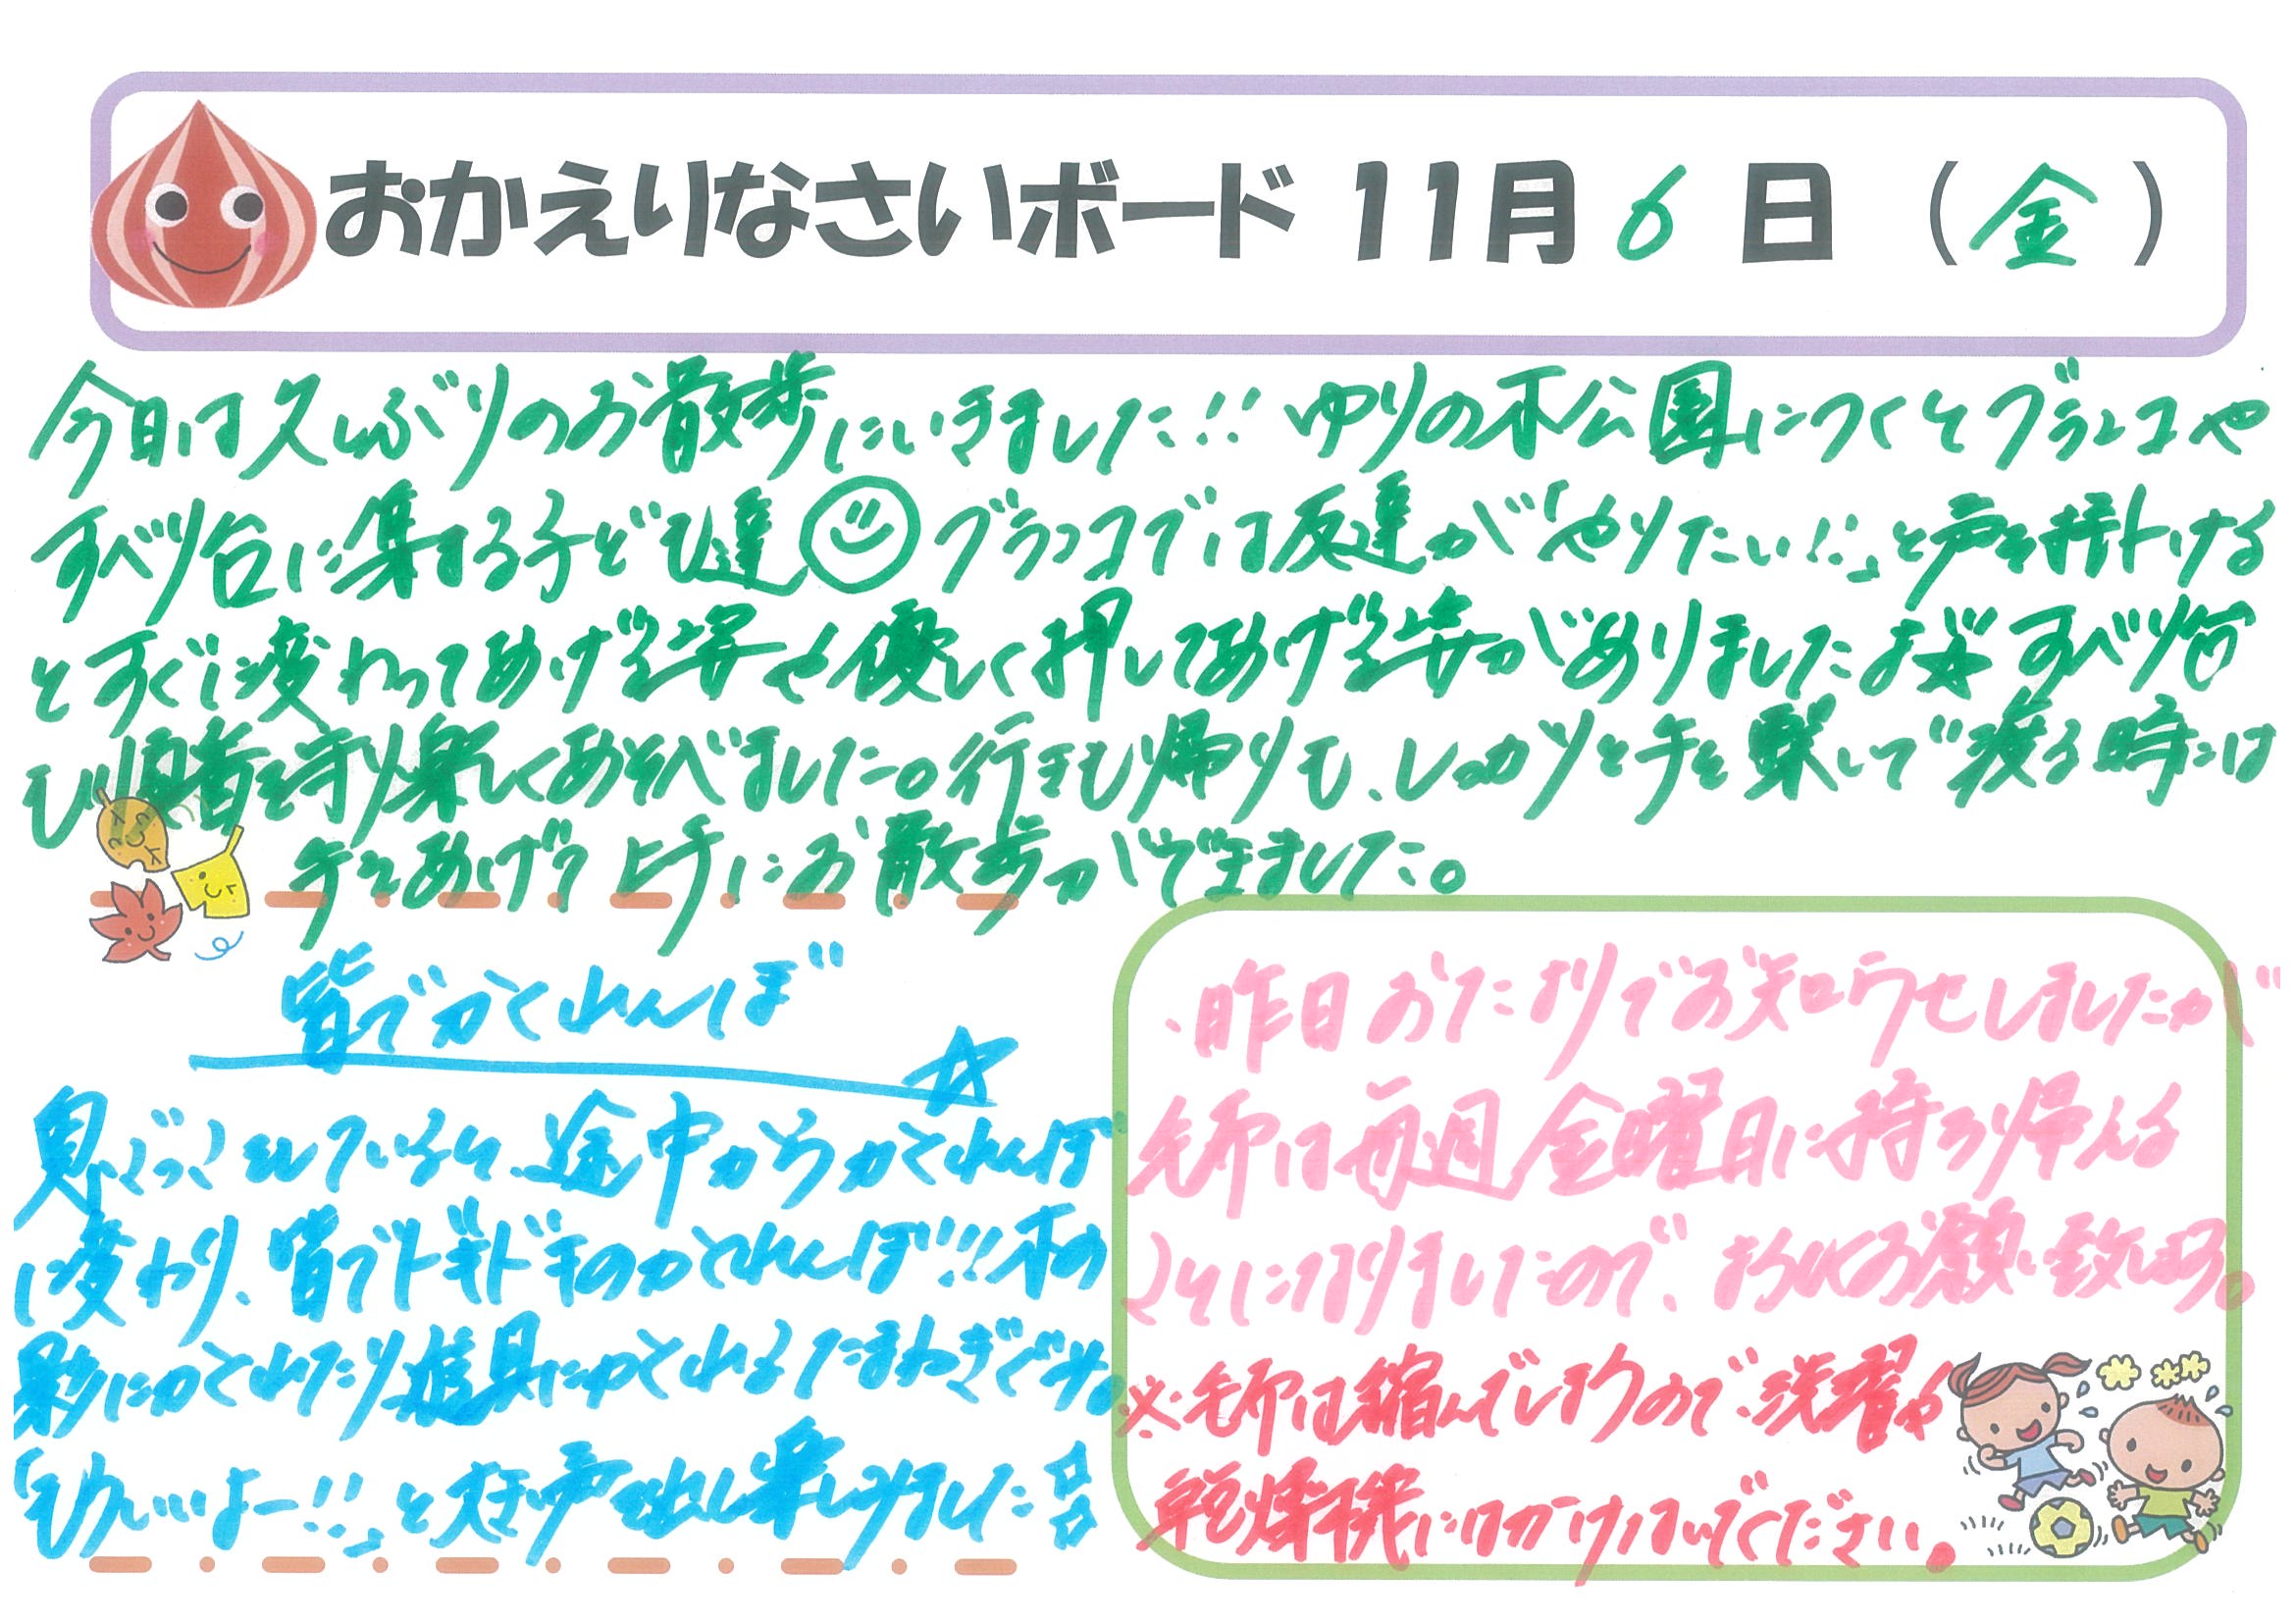 おかえりなさいボード 11月6日（金）
今日は久しぶりのお散歩にいきました!! ゆりの木公園につくとブランコや
すべり台に集まる子ども達 ブランコでは友達が「やりたい!!」と声を掛ける
とすぐに変わってあげる姿や優しく押してあげる姿がありましたよ☆ すべり台
も順番を守り楽しくあそべました。行きも帰りも、しっかりと手を繋いで渡る時には
手をあげて上手にお散歩ができました。
皆でかくれんぼ☆
鬼ごっこをしていると、途中からかくれんぼ
に変わり、皆でドキドキのかくれんぼ!!!木の
影にかくれたり遊具にかくれるたまねぎぐみ。
「もういいよー!!」と大きい声を出し楽しみました☆☆
・昨日おたよりでお知らせしましたが
は毎週金曜日に持ち帰える
ことになりましたので、よろしくお願い致します。
※は縮んでしまうので、洗濯や
乾燥機にはかけないでください。